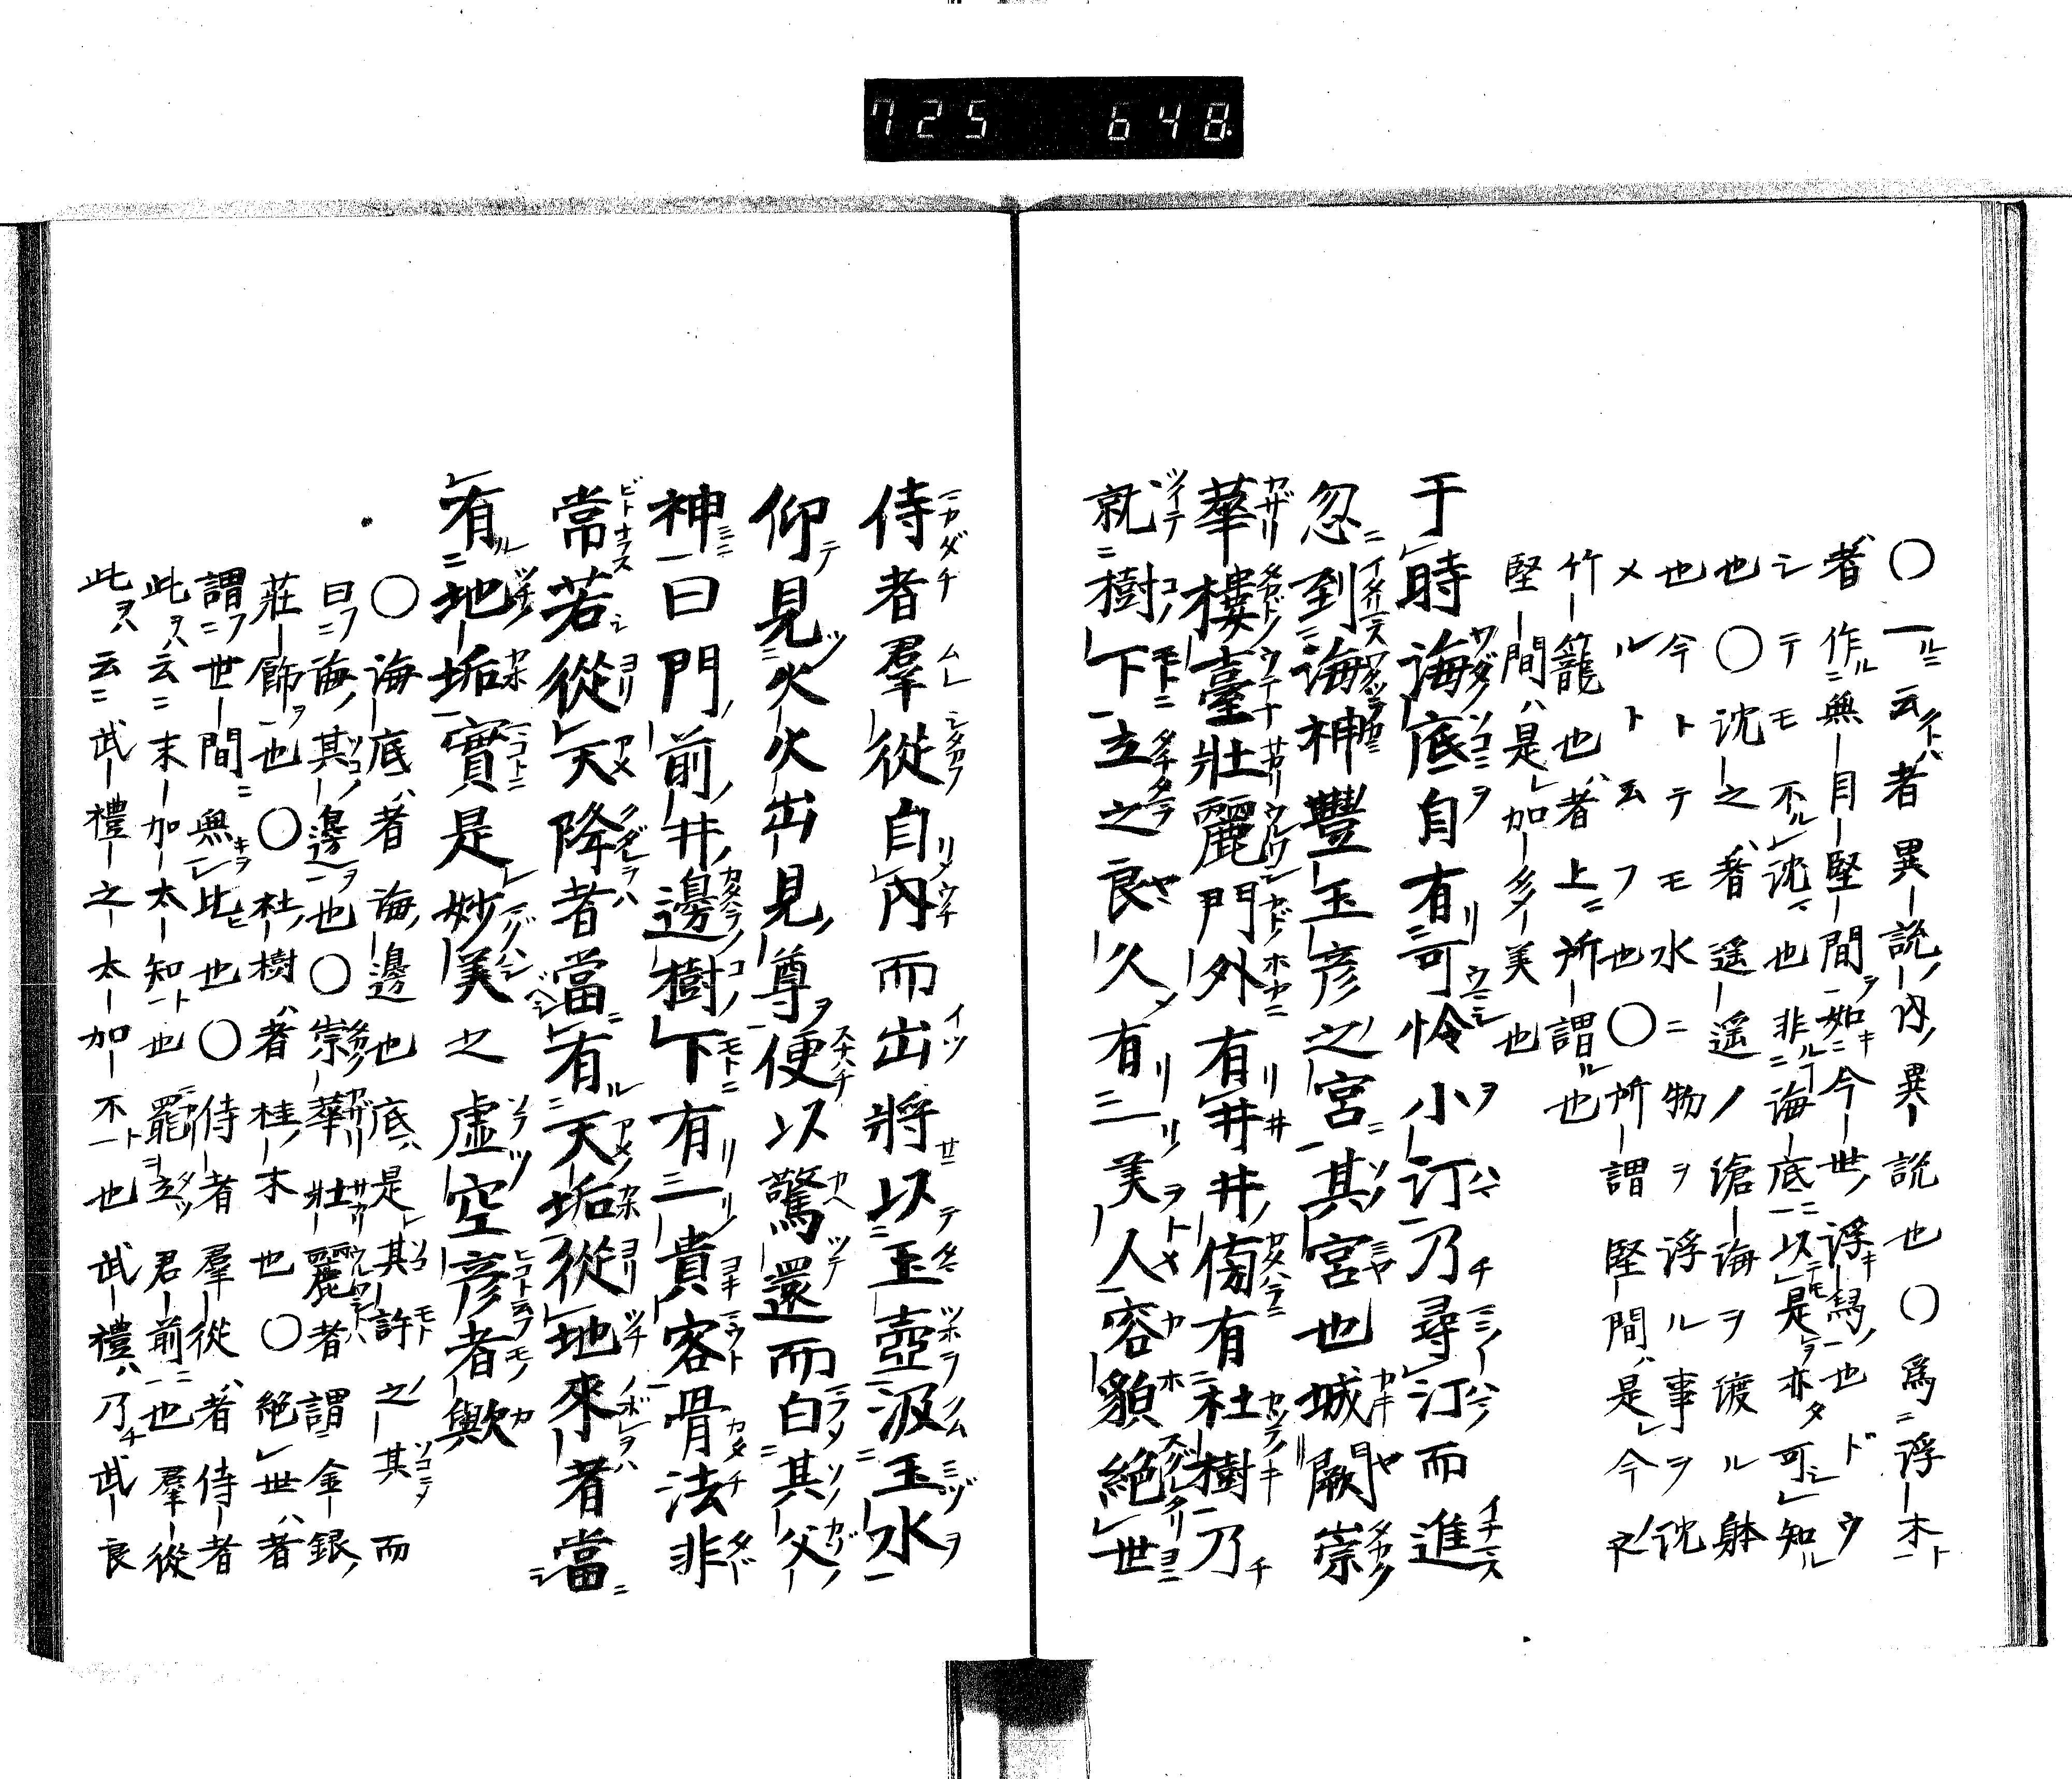 725 648
〇一云者異説内異説也〇爲浮木
者作無目堅間如今世浮舄也ドウ
シテモ不沈也非海底以是亦可知
也〇沈之者遥遥ノ滄海ヲ渡ル躰
也今トテモ水ニ物ヲ浮ル事ヲ沈
メルト云フ也〇所謂堅間是今之
竹籠也者上所謂也
堅間是加多美也
于時海底自有可怜小汀乃尋汀而進
忽到海神豐玉彦之宮其宮也城闕崇
華樓臺壯麗門外有井井傍有杜樹乃
就樹下立之良久有一美人容貌絶世
侍者羣從自內而出將以玉壺汲玉水
仰見火火出見尊便以驚還而白其父
神曰門前井邊樹下有一貴客骨法非
常若從天降者當有天垢從地來者當
有地垢實是妙美之虛空彦者歟
〇海底者海邊也底是其許之其而
曰海其邊也〇崇華壯麗者謂金銀
莊飾也〇杜樹者桂木也〇絶世者
謂世間無比也〇侍者羣從者侍者
此ヲハ云末加太知也罷立君前也羣從
此ヲハ云武禮之太加不也武禮乃武良